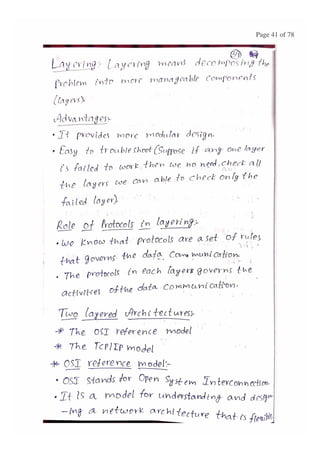 Page 41 of 78
41
Layering:- Layering means decomposing the
problem into more manageable components
(layers).
Advantages:-
• It provides more modular design.
• Easy to troubleshoot (Suppose if any one layer
is failed to work then we no need, check all
the layers we can able to check only the
failed layer).
Role of Protocols in layering:-
• We know that protocols are a set of rules
that governs the data communication.
• The protocols in each layers governs the
activities of the data communication.
Two layered Architectures:-
* The OSI reference model
* The TCP/IP model
* OSI reference model:-
• OSI stands for Open System Interconnection
• It is a model for understanding and design
-ing a network architecture that is flexible,